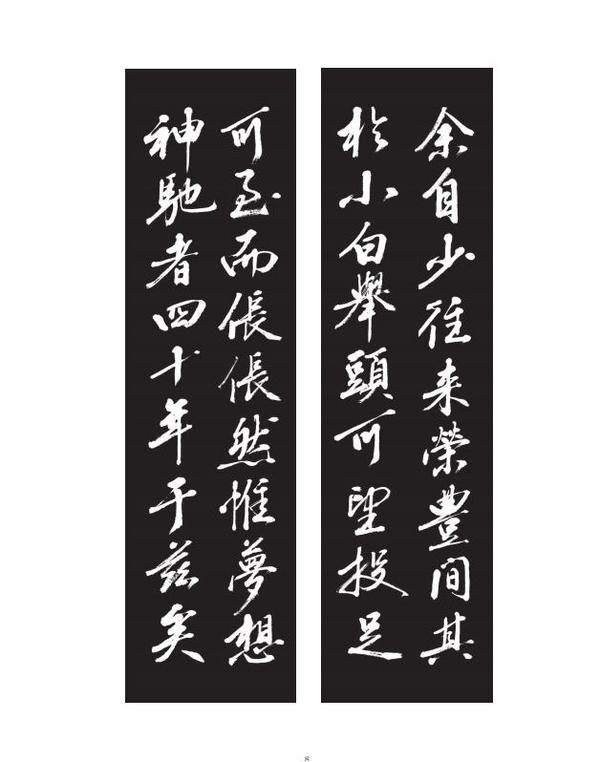 余自少往来榮豊間其
於小白舉頭可望投足
可至而倀倀然惟夢想
神馳者四十年于茲矣